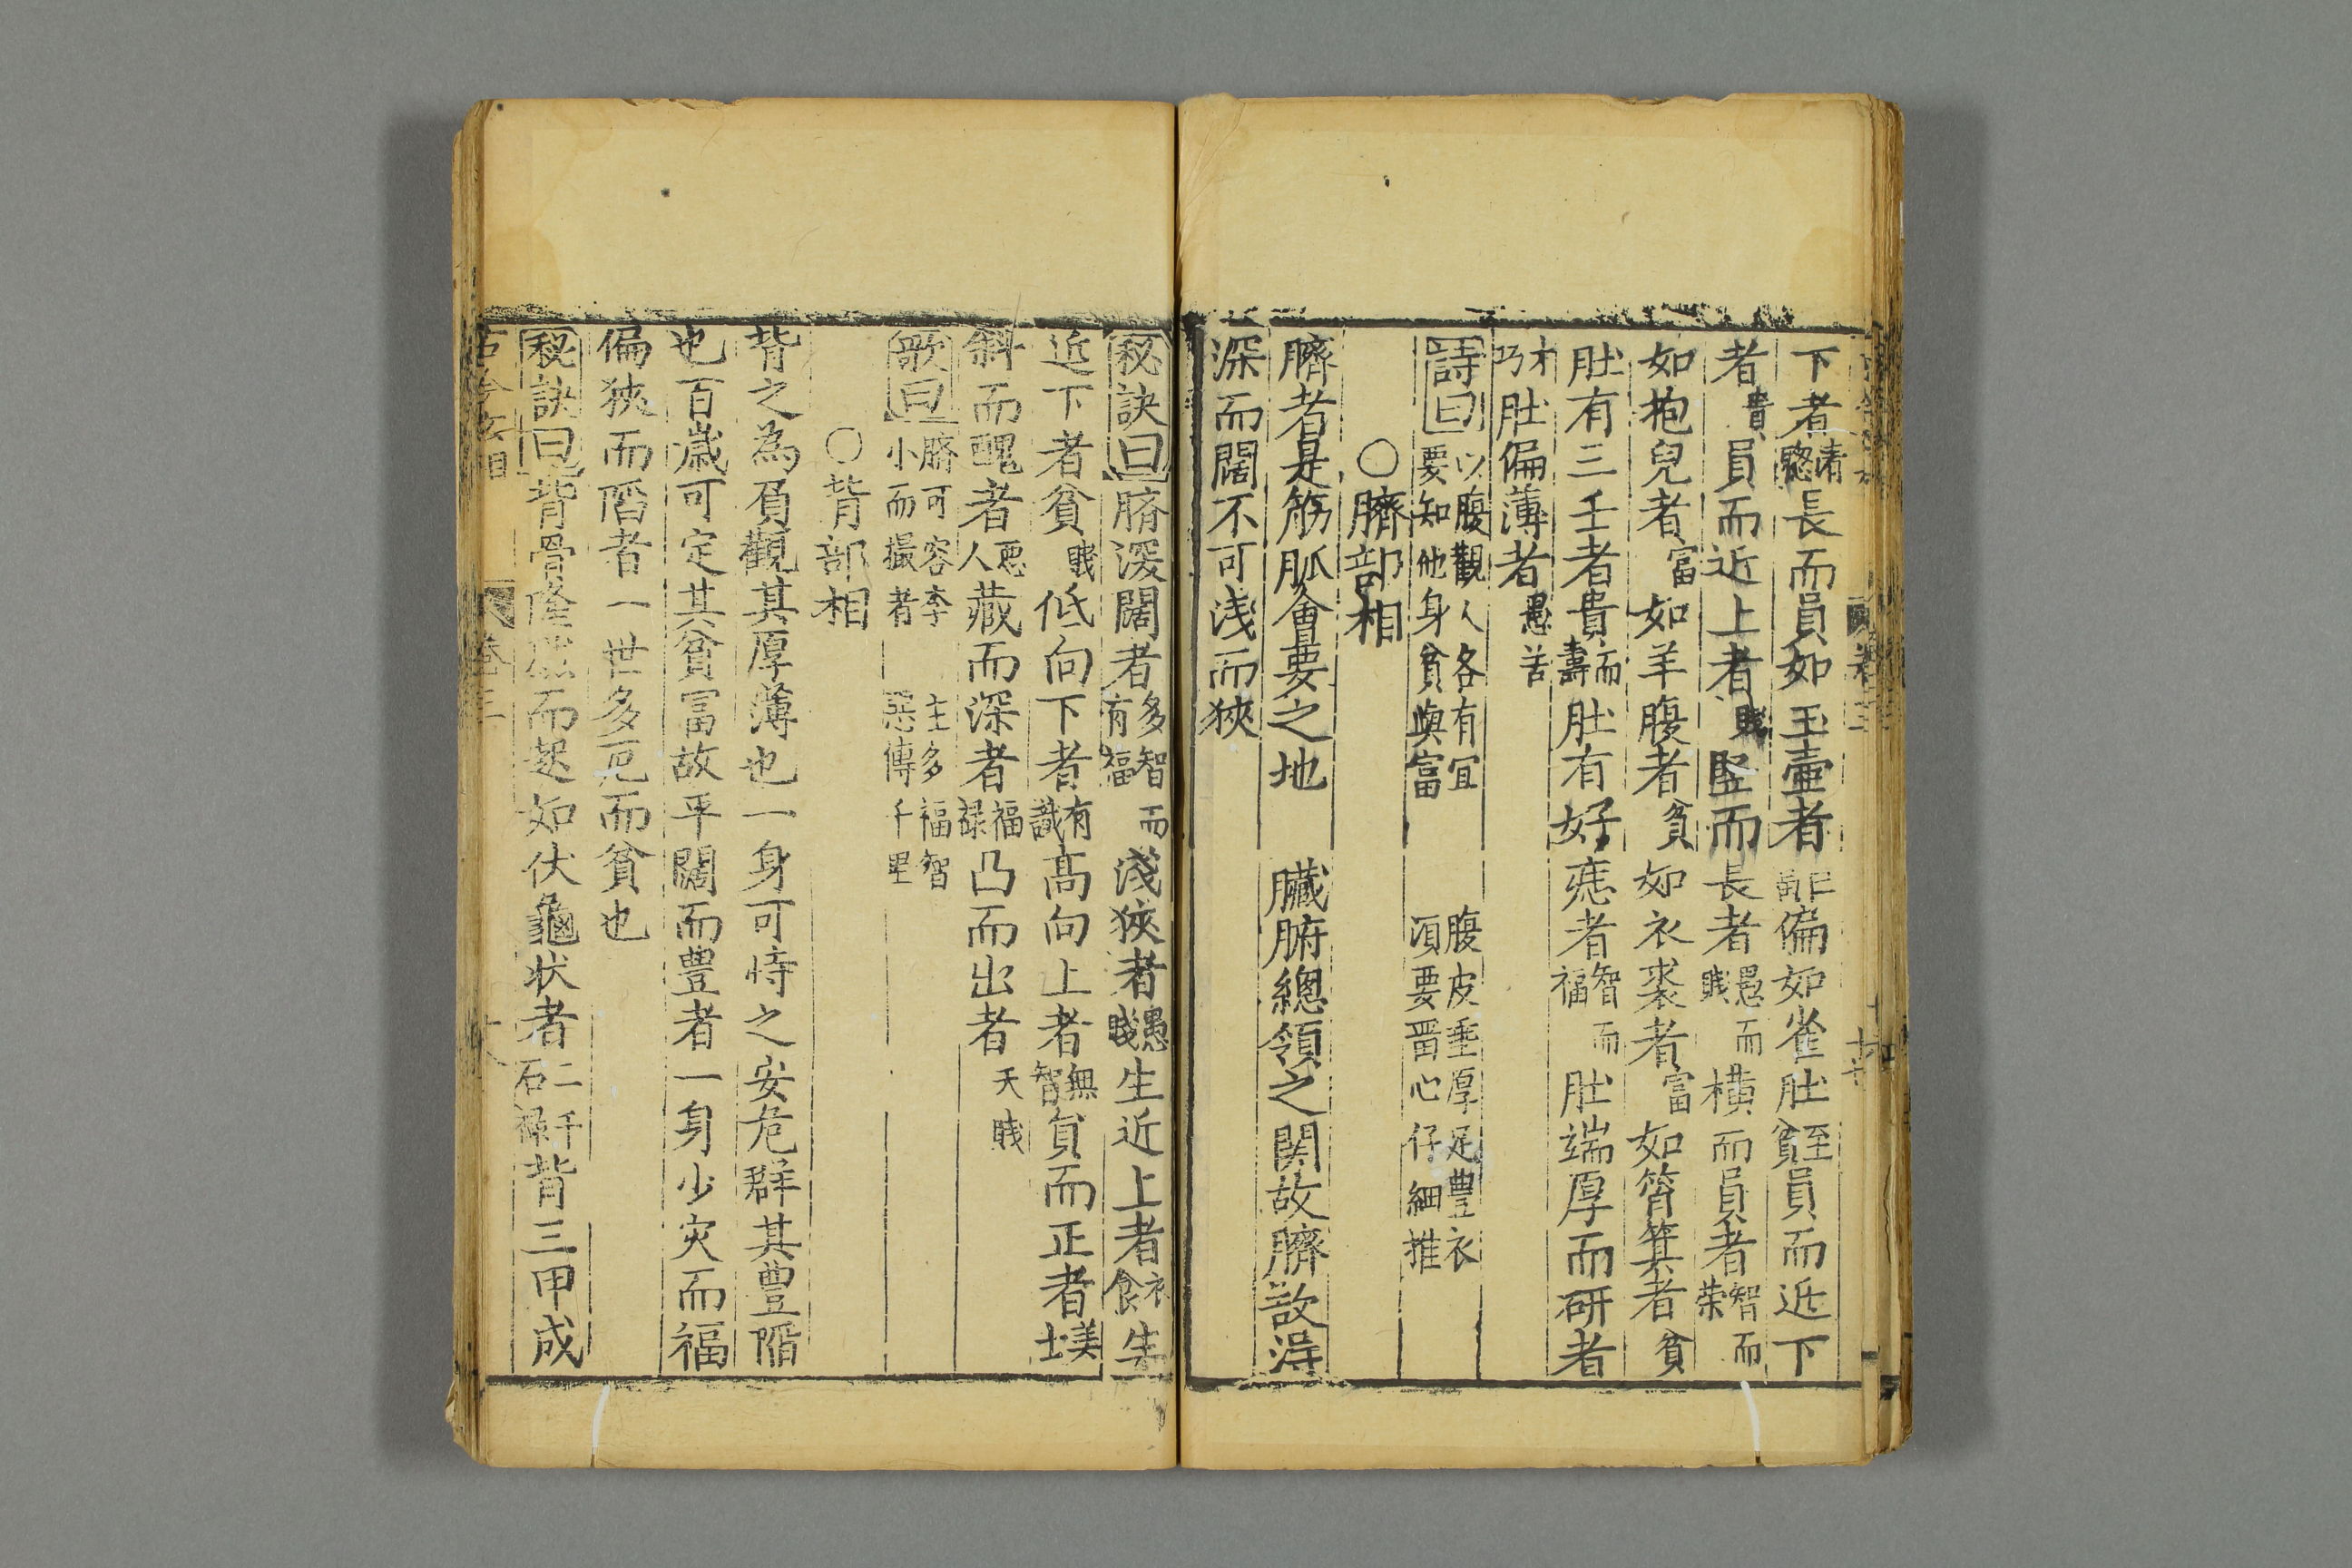 下者清愁長而員如玉壷者巨富偏如雀肚至貧員而近下
者貴員而近上者賤竪而長者愚賤而横而員者智榮而
如抱兒者富如羊腹者貧如衣裘者富如筲箕者貧
肚有三壬者貴而壽肚有好痣者智福而肚端厚而研者
才巧肚偏薄者愚苦
詩曰以腹觀人各有宜腹皮垂厚足豊衣
要知他身貧與富湏要畱心仔細推
○臍部相
臍者是筋脈會要之地臓腑總領之関故臍欲得
深而闊不可浅而狹
秘訣曰臍深闊者多智有福而淺狹者愚賤生近上者衣食生
近下者貧賤低向下者有識高向上者無智負而正者美士
斜而醜者惡人藏而深者福禄凸而出者夭賤
歌曰臍可容李主多福智
小而撮者惡傳千里
○背部相
背之為負觀其厚薄也一身可恃之安危群其豊陷
也百歳可定其貧冨故平闊而豊者一身少灾而福
偏狹而陷者一世多厄而貧也
秘訣曰背骨隆然而起如伏龜状者二千石禄背三甲成
古今玄相 卷三